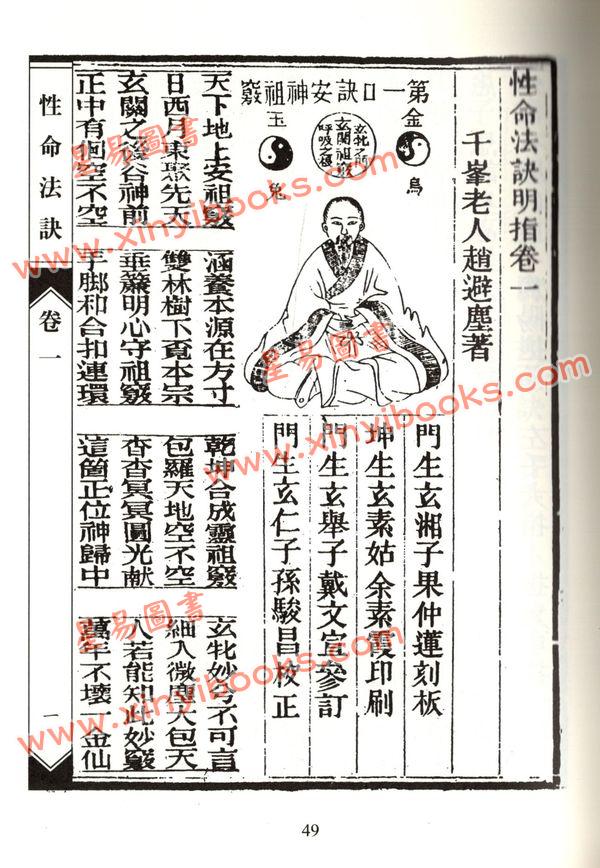 性命法訣明指卷一
千峯老人趙避塵著
第一口訣安神祖竅
金烏
玄牝之門
玄關祖竅
呼吸之根
玉兔
門生玄湘子果仲蓮刻板
坤生玄素姑余素霞印刷
門生玄舉子戴文宣參訂
門生玄仁子孫駿昌校正
天下地上安祖竅 涵養本源在方寸 乾坤合成靈祖竅 玄牝妙兮不可言
日西月東聚先天 雙林樹下覔本宗 包羅天地空不空 細入微塵大包天
玄關之後谷神前 垂簾明心守祖竅 杳杳冥冥圓光献 人若能知此妙竅
正中有個空不空 手脚和合扣連環 這箇正位神歸中 萬年不壞一金仙
性命法訣 卷一 一
49
星易圖書
www.xinyibooks.com
星易圖書
www.xinyibooks.com
星易圖書
www.xinyibooks.com